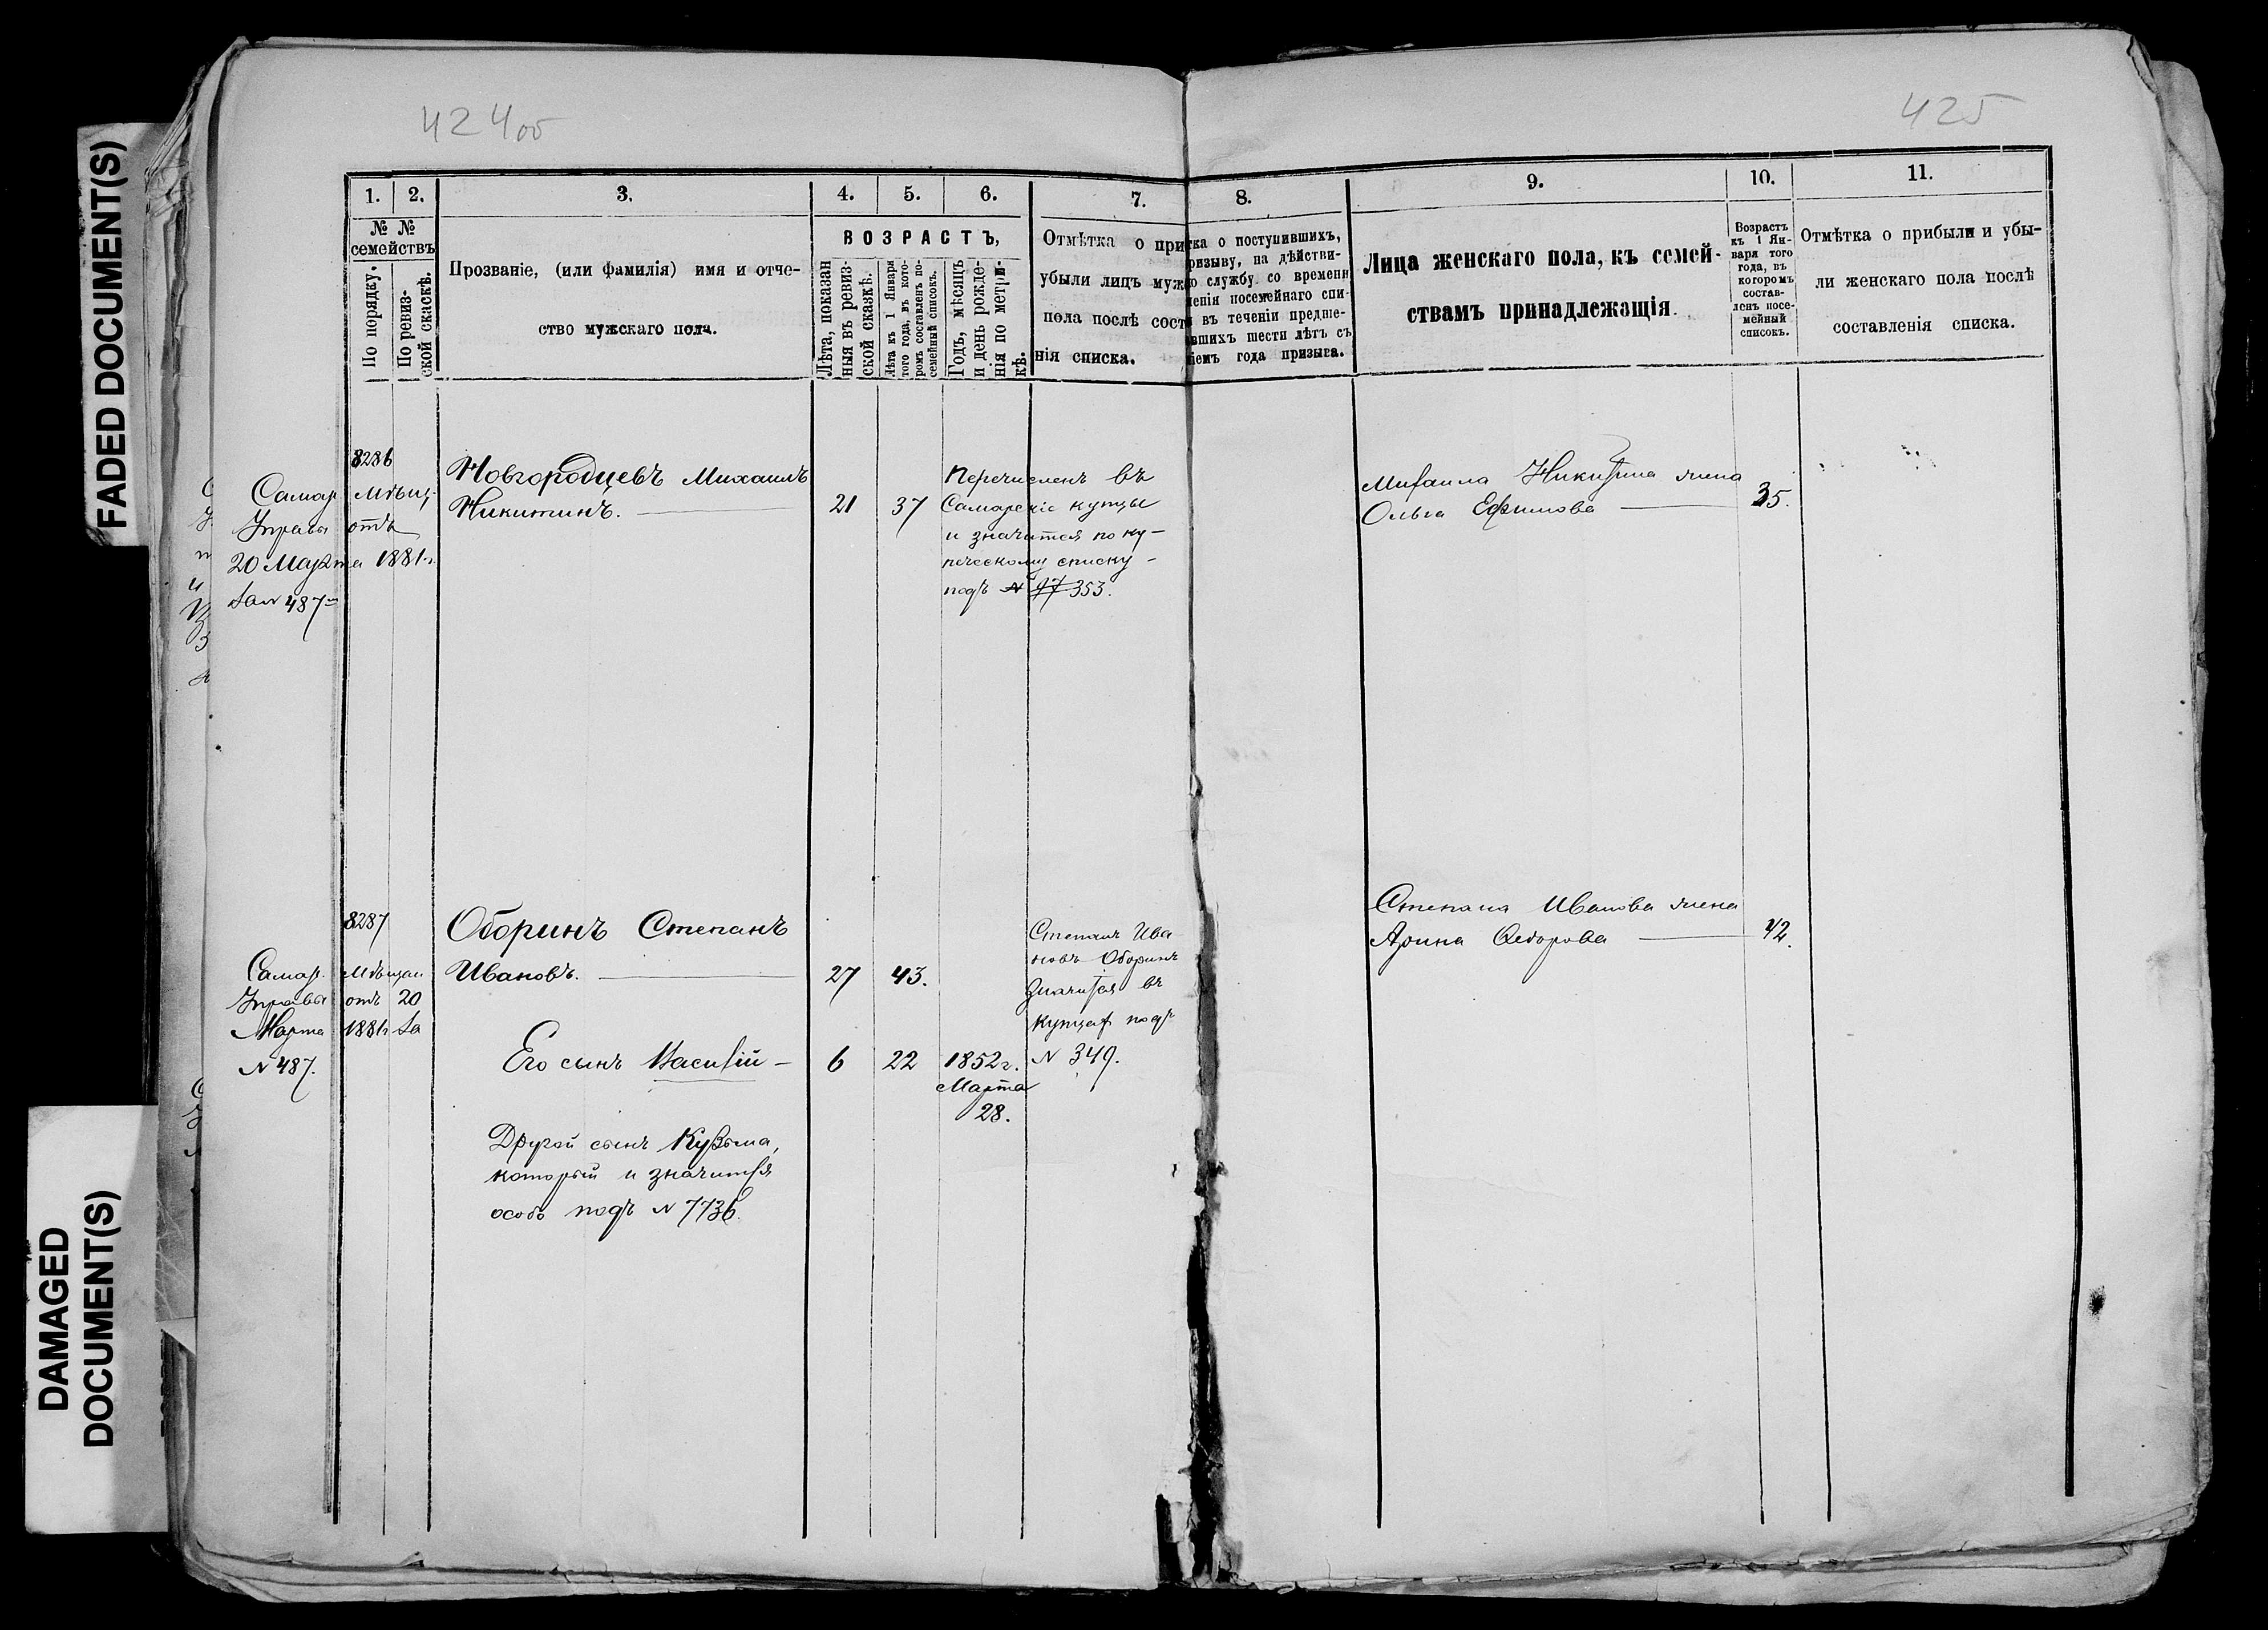 FADED DOCUMENT(S)
DAMAGED
DOCUMENT(S)
424об
425
1. 2. 3. 4. 5. 6. 7. 8. 9. 10. 11.
№ №
семействъ
По порядку.
По ревиз-
ской сказкѣ.
Прозваніе, (или фамилія) имя и отче-
ство мужскаго пола.
ВОЗРАСТЪ,
Лѣта, показан
ныя въ ревиз-
ской сказкѣ.
Лѣта къ 1 Января
того года, въ кото-
ромъ составленъ по-
семейный списокъ.
Годъ, мѣсяцъ
и день рожде-
нія по метри-
кѣ.
Отмѣтка о при
убыли лицъ муж
пола послѣ сост
нія списка.
тка о поступившихъ,
ризыву, на дѣйстви-
ю службу со времени
ленія посемейнаго спи-
и въ теченіи предше-
вшихъ шести лѣтъ съ
ніемъ года призыва.
Лица женскаго пола, къ семей-
ствамъ принадлежащія.
Возрастъ
къ 1 Ян-
варя того
года, въ
которомъ
состав-
ленъ посе-
мейный
списокъ.
Отмѣтка о прибыли и убы-
ли женскаго пола послѣ
составленія списка.
8286
Самар. Мѣщ.
Управы отъ
20 Марта 1881 г.
за № 487
Новгородцевъ Михаилъ
Никитинъ.
21 37
Перечисленъ въ
Самарскіе купцы
и значится по ку-
печескому списку
подъ № 97 353.
Михаила Никитина жена
Ольга Ефимова 35.
8287
Самар. Мѣщан
Управы отъ 20
Марта 1881 г за
№ 487.
Оборинъ Степанъ
Ивановъ. 27 43.
Степанъ Ива
новъ Оборинъ
значится въ
купцах подъ
№ 349.
Степана Иванова жена
Арина Ѳедорова 42.
Его сынъ Василій 6 22 1852 г.
Марта
28.
Другой сынъ Кузьма,
который и значится
особо подъ № 7736.